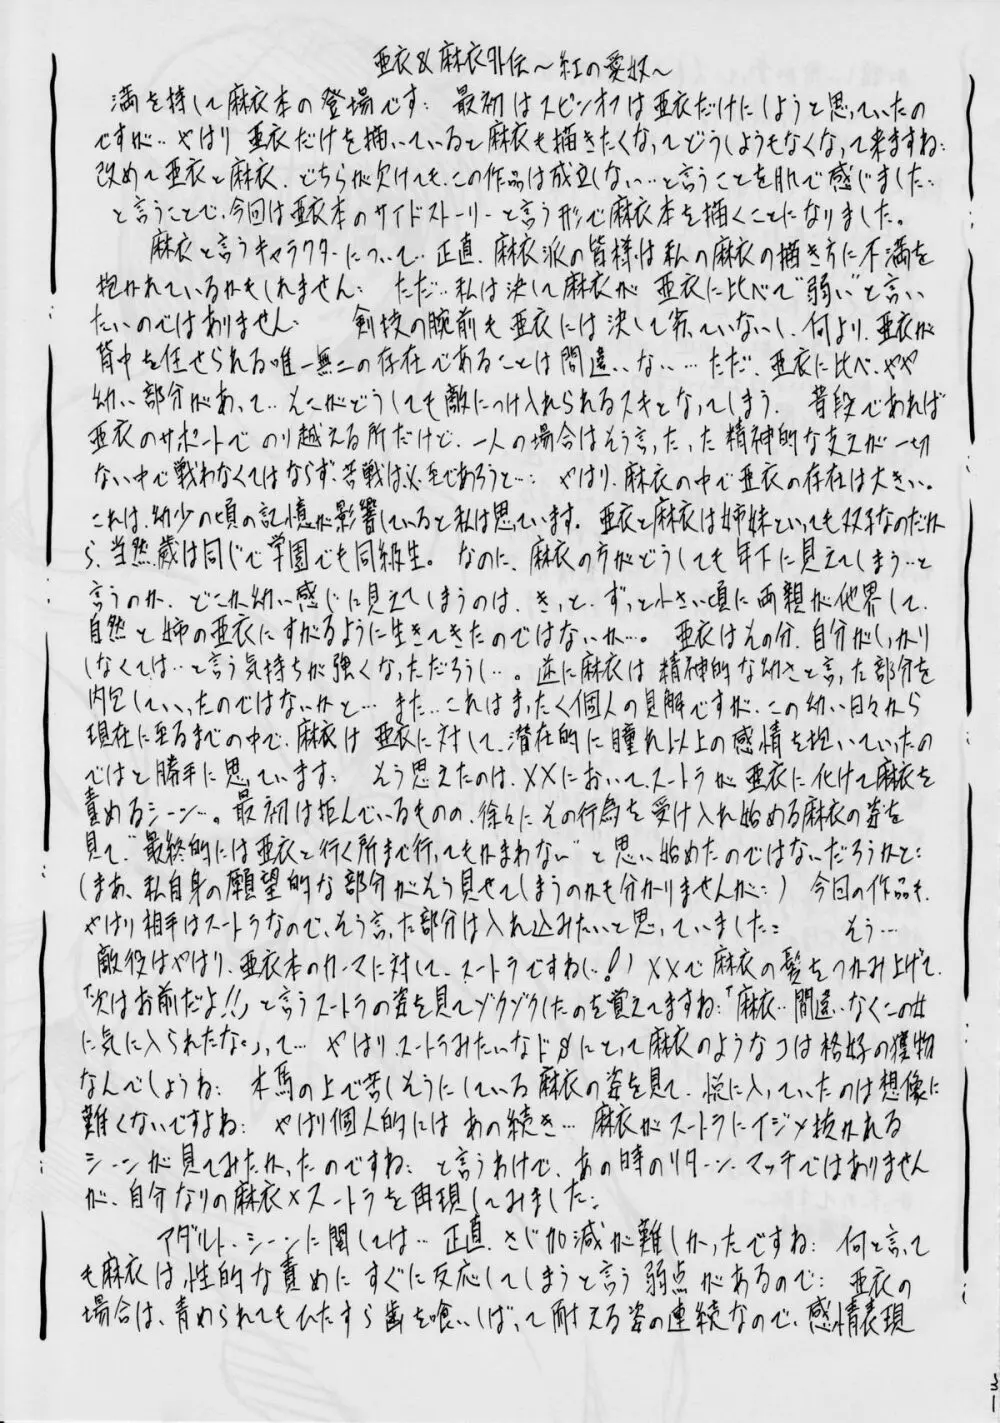 亜衣&麻衣外伝～紅の愛奴～
満を持して麻衣本の登場です: 最初はスピンオフは亜衣だけにしようと思っていたの
ですが‥やはり 亜衣だけを描いていると麻衣も描きたくなってどうしようもなくなって来ますね:
改めて亜衣と麻衣、どちらが欠けても、この作品は成立しない‥と言うことを肌で感じました:
と言うことで、今回は亜衣本のサイドストーリーと言う形で麻衣本を描くことになりました。
麻衣と言うキャラクターについて‥正直、麻衣派の皆様は私の麻衣の描き方に不満を
抱かれているかもしれません: ただ‥私は決して麻衣が 亜衣に比べて"弱い"と言い
たいのではありません: 剣技の腕前も亜衣には決して劣っていないし、何より、亜衣が
背中を任せられる唯一無二の存在であることは間違いない…ただ、亜衣に比べ、やや
幼い部分があって‥そこがどうしても敵につけ入れられるスキとなってしまう。 普段であれば
亜衣のサポートで のり越える所だけど、一人の場合はそう言った、た精神的な支えが一切
ない中で戦わなくてはならず、苦戦は必至であろうと…: やはり、麻衣の中で亜衣の存在は大きい。
これは、幼少の頃の記憶が影響していると私は思っています。 亜衣と麻衣は姉妹といっても双子なのだか
ら、当然歳は同じで学園でも同級生。 なのに、麻衣の方がどうしても年下に見えてしまう‥と
言うのか、どこか幼い感じに見えてしまうのは、きっと、ずっと小さい頃に両親が他界して、
自然と姉の亜衣にすがるように生きてきたのではないか…。 亜衣はその分、自分がしっかり
しなくては‥と言う気持ちが強くなっただろうし…。逆に麻衣は精神的な幼さと言った部分を
内包していったのではないかと… また‥これはまったく個人の見解ですが、この幼い日々から
現在に至るまでの中で、麻衣は 亜衣に対して、潜在的に憧れ以上の感情を抱いていったの
ではと勝手に思っています: そう思えたのは、××において、スートラが亜衣に化けて麻衣を
責めるシーン…。最初は拒んでいるものの、徐々に その行為を受け入れ始める麻衣の姿を
見て"最終的には亜衣と行く所まで行ってもかまわない"と思い始めたのではないだろうかと:
(まあ、私自身の願望的な部分がそう見せてしまうのかも分かりませんが:) 今回の作品も、
やはり相手はスートラなので、そう言った部分は入れ込みたいと思っていました: そう…
敵役はやはり、亜衣本のカーマに対して、スートラですねし‥!) ××で麻衣の髪をつかみ上げて、
「次はお前だよ!!」と言うスートラの姿を見てゾクゾクしたのを覚えてますね:「麻衣‥間違いなくこの女
に気に入られたな。」って… やはり スートラみたいなドSにとって麻衣のようなコは格好の獲物
なんでしょうね: 木馬の上で苦しそうにしている麻衣の姿を見て、悦に入っていたのは想像に
難くないですよね: やはり個人的には あの続き… 麻衣がスートラにイジメ抜かれる
シーンが見てみたかったのですね: と言うわけで、あの時のリターン・マッチではありません
が、自分なりの麻衣×スートラを再現してみました:
アダルト・シーンに関しては‥正直、さじ加減が難しかったですね: 何と言って
も麻衣は性的な責めに すぐに反応してしまうと言う弱点があるので: 亜衣の
場合は、責められてもひたすら歯を喰いしばって耐える姿の連続なので、感情表現
31